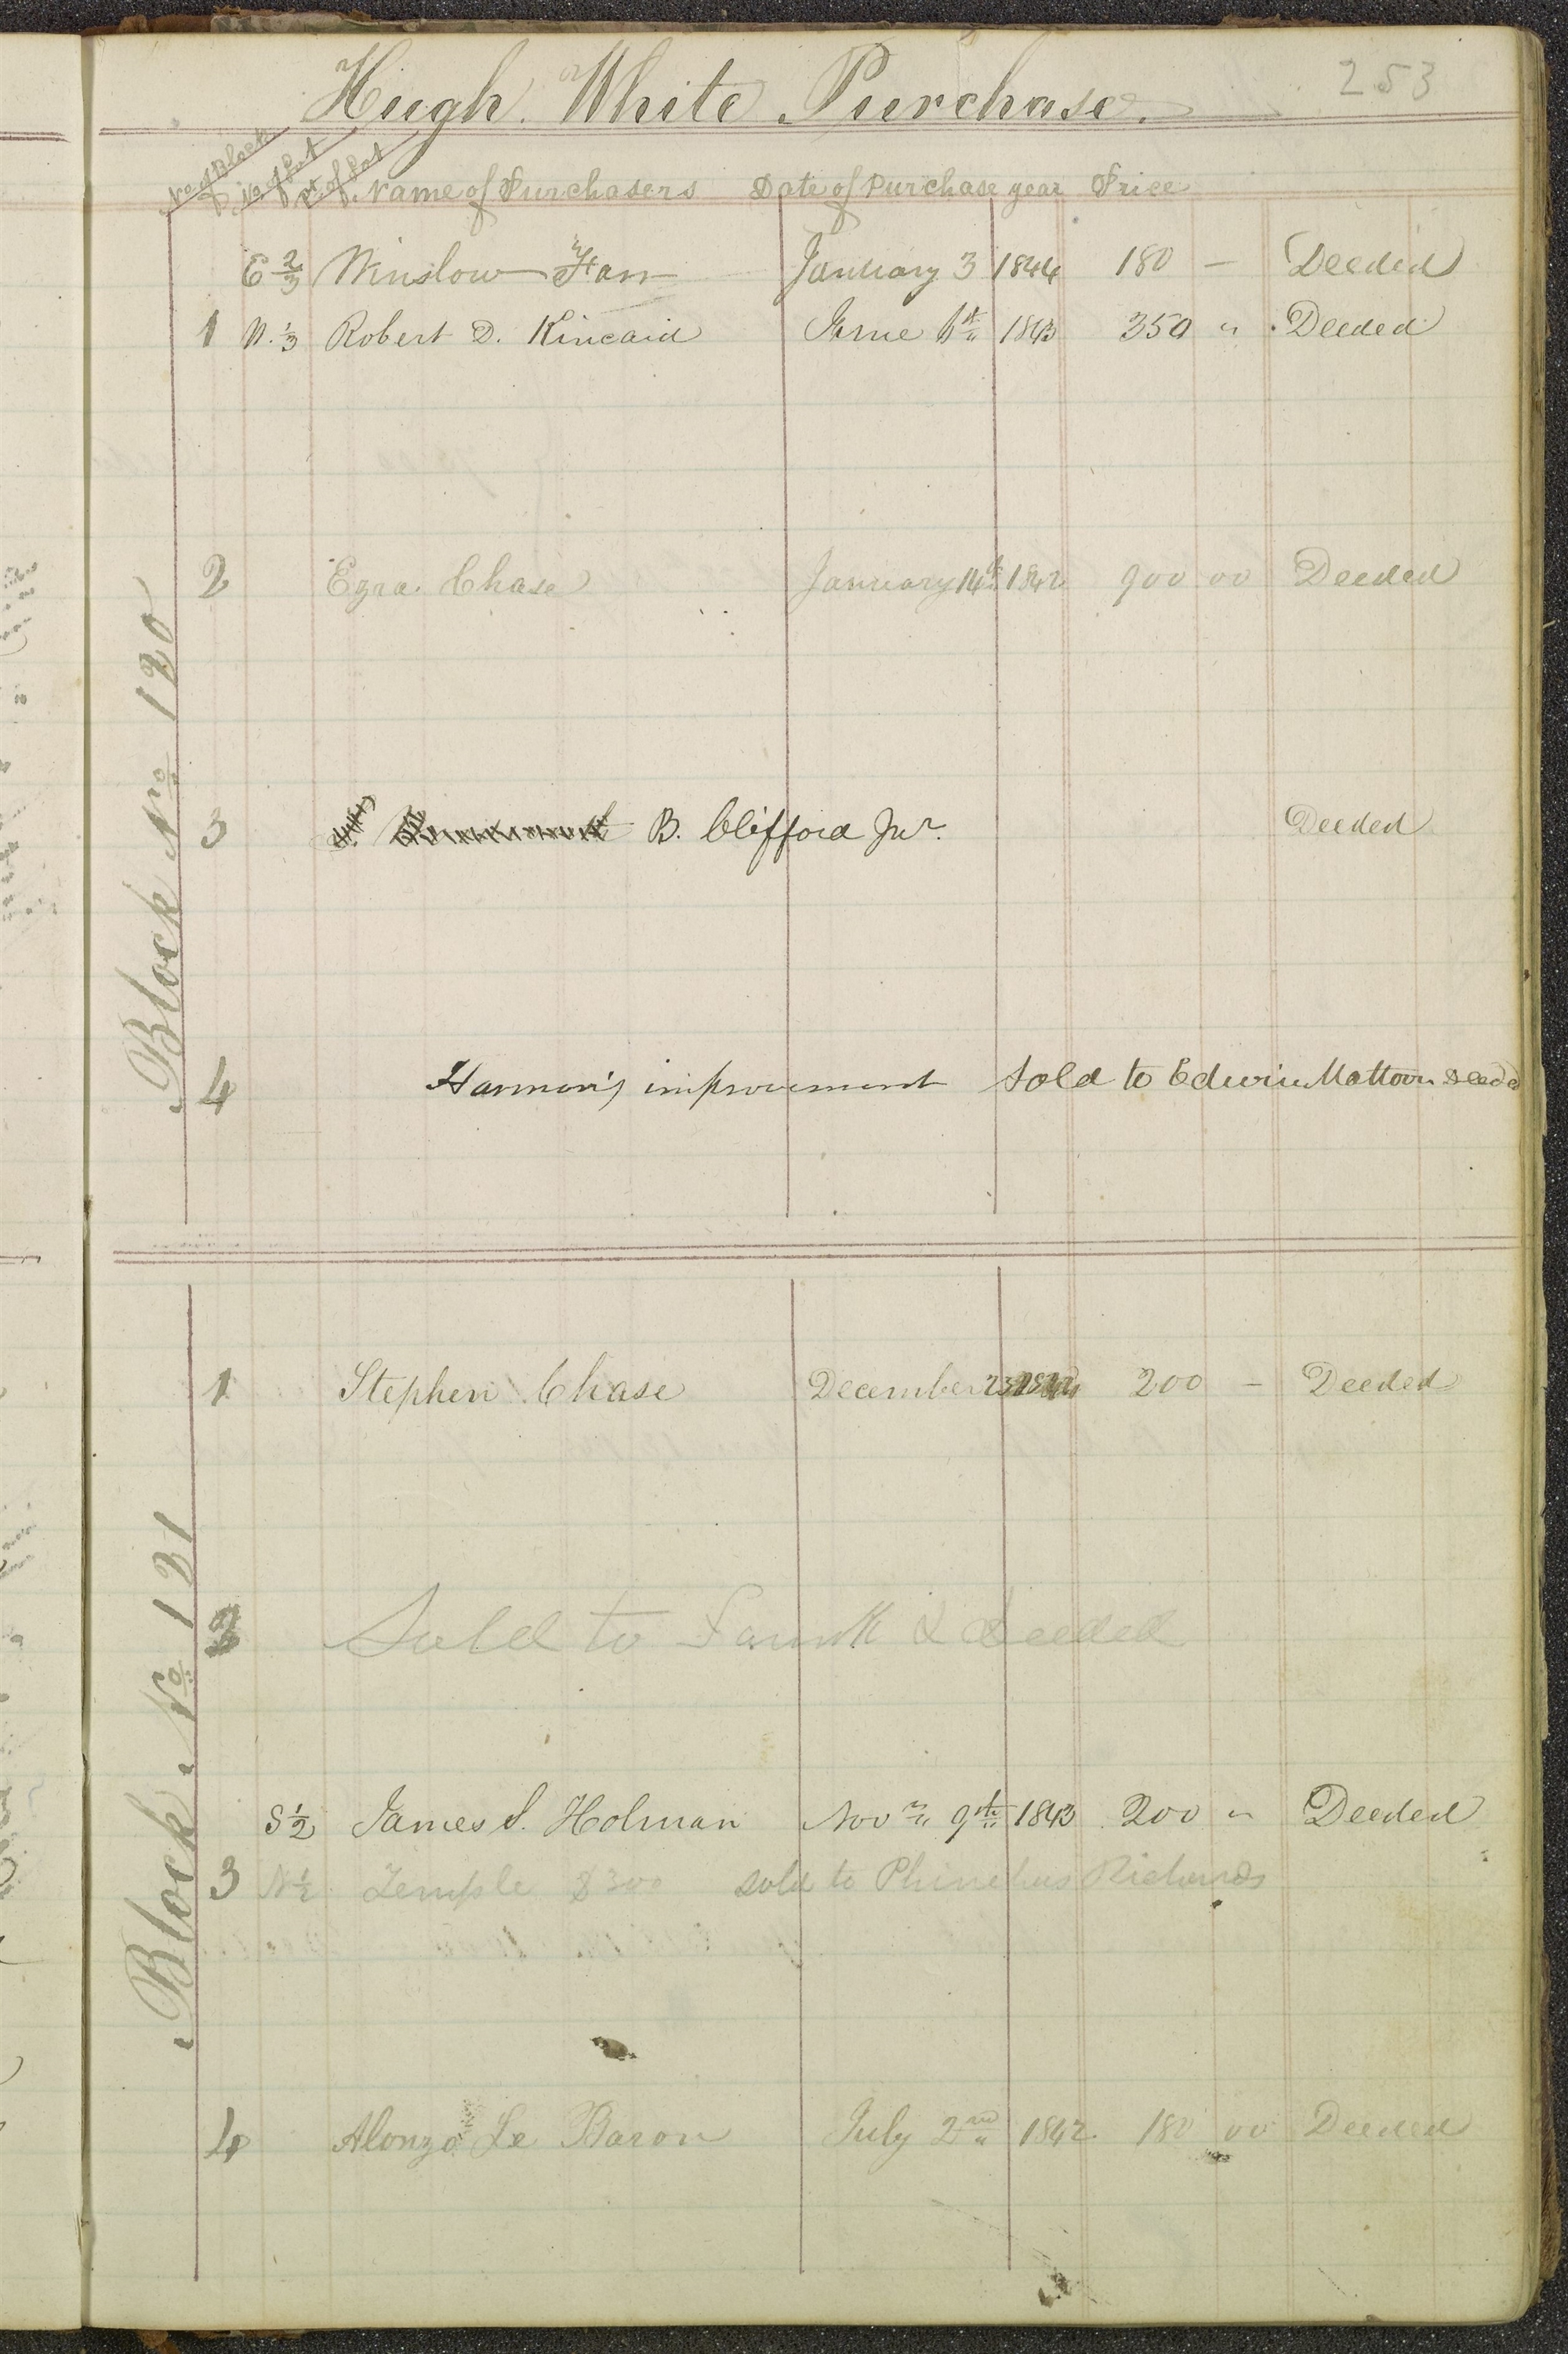 253
Hugh White Purchase.
No of Block No of Lot Pt of Lot Name of Purchasers Date of Purchase year Price
E 2/3 Winslow Farr January 3 1844 180 — Deeded
1 N. 1/3 Robert D. Kincaid June 1st 1843 350 " Deeded
2 Ezra Chase January 14th 1842 900 00 Deeded
Block No 120
3 B. Clifford Jnr. Deeded
4 Harmon's improvement Sold to Edwin Mattoon Deeded
1 Stephen Chase December 23 200 — Deeded
Block No 121
2 Sold to & deeded
S 1/2 James S. Holman Nov 9th 1843 200 " Deeded
3 N 1/2 Temple $300 sold to Phinehas Richards
4 Alonzo Le Baron July 2nd 1842. 180 00 Deeded